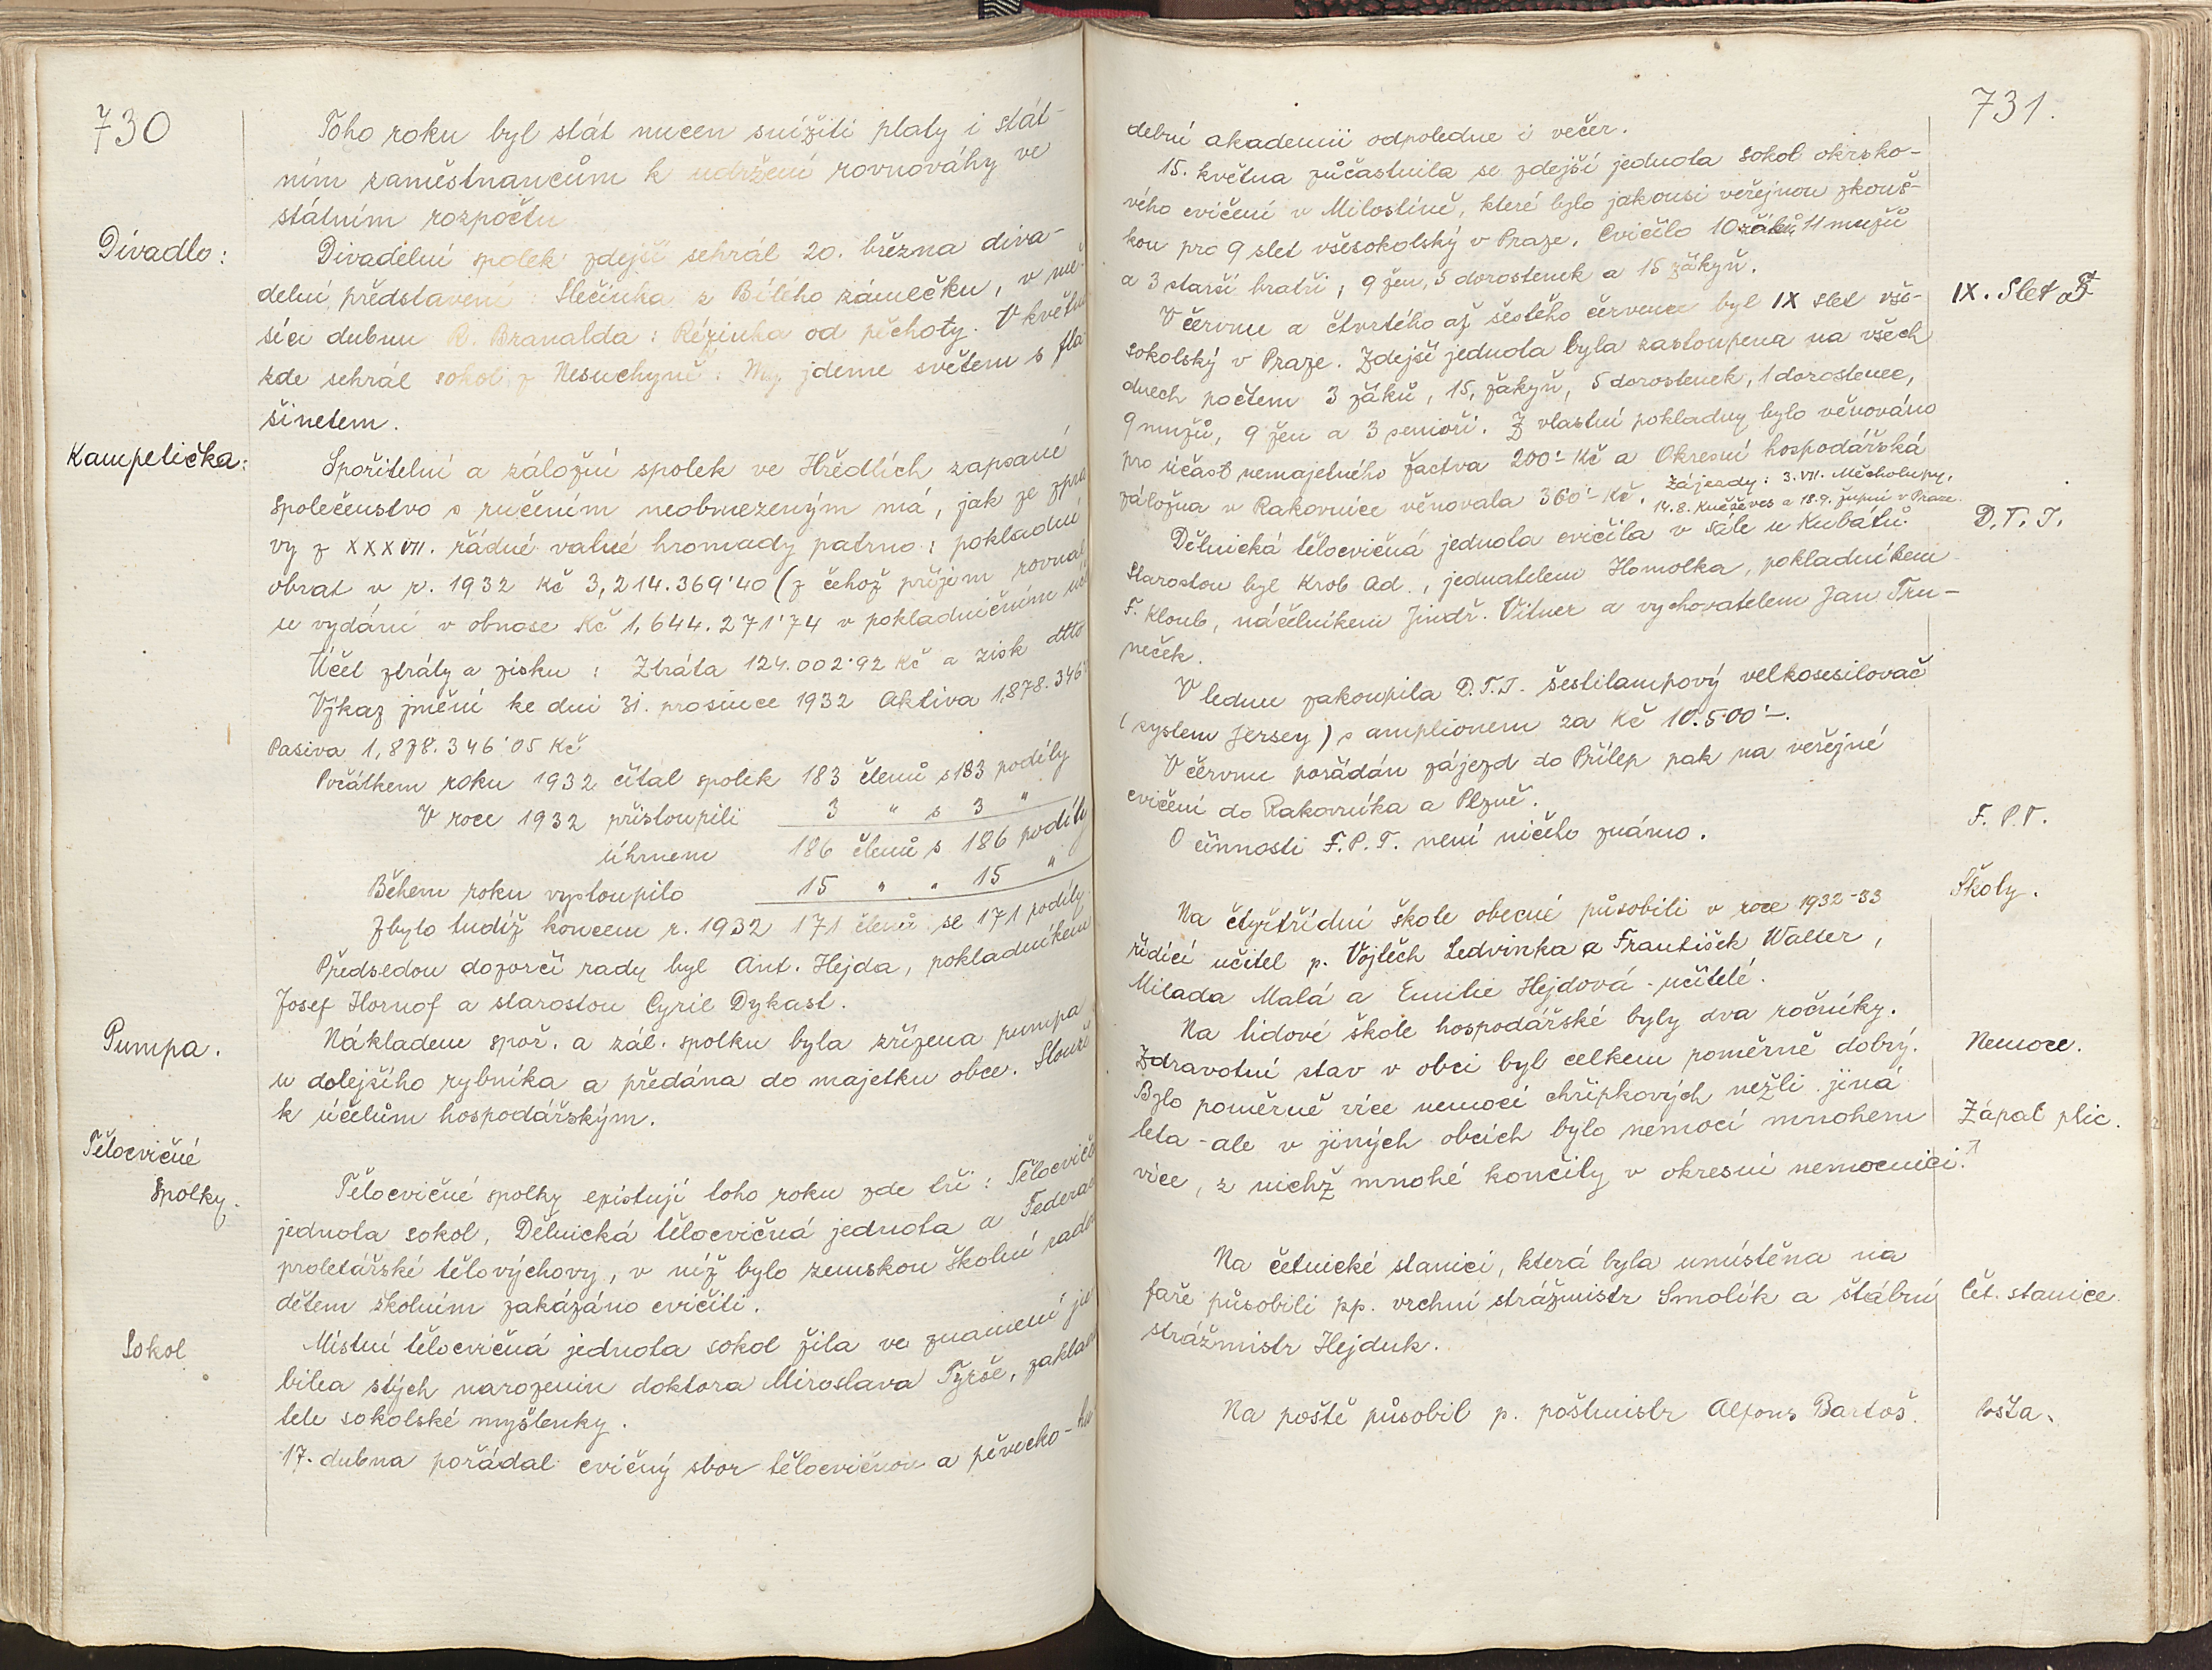 730
Toho roku byl stát nucen snížiti platy i stát-
ním zaměstnancům k udržení rovnováhy ve
státním rozpočtu
Divadlo:
Divadelní spolek zdejší sehrál 20. března diva-
delní představení: Slečinka z Bílého zámečku, v mě-
síci dubnu R. Branalda: Rézinka od pěchoty. V květnu
zde sehrál sokol z Nesuchyně: My jdeme světem s fla-
šinetem.
Kampelička:
Spořitelní a záložní spolek ve Hředlích zapsané
společenstvo s ručením neobmezeným má, jak ze zprá
vy z XXXVII. řádné valné hromady patrno: pokladní
obrat v r. 1932 Kč 3,214.369'40 (z čehož příjem rovnal
u vydání v obnose Kč 1,644.271'74 v pokladničním
Účet ztráty a zisku: Ztráta 124.002'92 Kč a zisk dtto
Výkaz jmění ke dni 31. prosince 1932 Aktiva 1,878.346'
Pasiva 1,878.346'05 Kč
Počátkem roku 1932 čítal spolek 183 členů s 183 podíly
V roce 1932 přistoupili 3 " s 3 "
úhrnem 186 členů s 186 podíly
Během roku vystoupilo 15 " " 15 "
Zbylo tudíž koncem r. 1932 171 členů se 171 podíly.
Předsedou dozorčí rady byl Ant. Hejda, pokladníkem
Josef Hornof a starostou Cyril Dykast.
Pumpa.
Nákladem spoř. a zál. spolku byla zřízena pumpa
u dolejšího rybníka a předána do majetku obce. Slouží
k účelům hospodářským.
Tělocvičné
spolky.
Tělocvičné spolky existují toho roku zde tři: Tělocvičná
jednota sokol, Dělnická tělocvičná jednota a Federace
proletářské tělovýchovy, v níž bylo zemskou školní radou
dětem školním zakázáno cvičiti.
Sokol
Místní tělocvičná jednota sokol žila ve znamení ju
bilea stých narozenin doktora Miroslava Tyrše, zaklada
tele sokolské myšlenky.
17. dubna pořádal cvičný sbor tělocvičnou a pěvecko-hu
731.
dební akademii odpoledne i večer.
15. května zúčastnila se zdejší jednota sokol okrsko-
vého cvičení v Milostíně, které bylo jakousi veřejnou zkouš-
kou pro 9 slet všesokolský v Praze. Cvičilo 10 žáků, 11 mužů
a 3 starší bratří, 9 žen, 5 dorostenek a 15 žákyň.
IX. Slet
V červnu a čtvrtého až šestého července byl IX slet vše-
sokolský v Praze. Zdejší jednota byla zastoupena na všech
dnech počtem 3 žáků, 15, žákyň, 5 dorostenek, 1 dorostenec,
9 mužů, 9 žen a 3 senioři. Z vlastní pokladny bylo věnováno
pro účast nemajetného žactva 200'- Kč a Okresní hospodářská
záložna v Rakovníce věnovala 360'- Kč. Zájezdy: 3.VII. Měcholupy,
14.8. Kněževes a 18.9. župní v Praze.
D.T.J.
Dělnická tělocvičná jednota cvičila v sále u Kubátů.
Starostou byl Krob Ad., jednatelem Homolka, pokladníkem
F. Kloub, náčelníkem Jindř. Vitner a vychovatelem Jan Trn-
neček.
V lednu zakoupila D.T.J. šestilampový velkosesilovač
(system Jersey) s amplionem za Kč 10.500'-.
V červnu pořádán zájezd do Přílep pak na veřejné
cvičení do Rakovníka a Plzně.
F. P.T.
O činnosti F.P.T. není ničeho známo.
Školy.
Na čtyřtřídní škole obecné působili v roce 1932-33
řídící učitel p. Vojtěch Ledvinka a František Walter,
Milada Malá a Emilie Hejdová - učitelé.
Na lidové škole hospodářské byly dva ročníky.
Nemoce.
Zdravotní stav v obci byl celkem poměrně dobrý.
Bylo poměrně více nemocí chřipkových nežli jiná
Zápal plic.
léta - ale v jiných obcích bylo nemocí mnohem
více, z nichž mnohé končily v okresní nemocnici.
Na četnické stanici, která byla umístěna na
čet. stanice.
faře působili pp. vrchní strážmistr Smolík a štábní
strážmistr Hejduk.
Pošta.
Na poště působil p. poštmistr Alfons Bartoš.